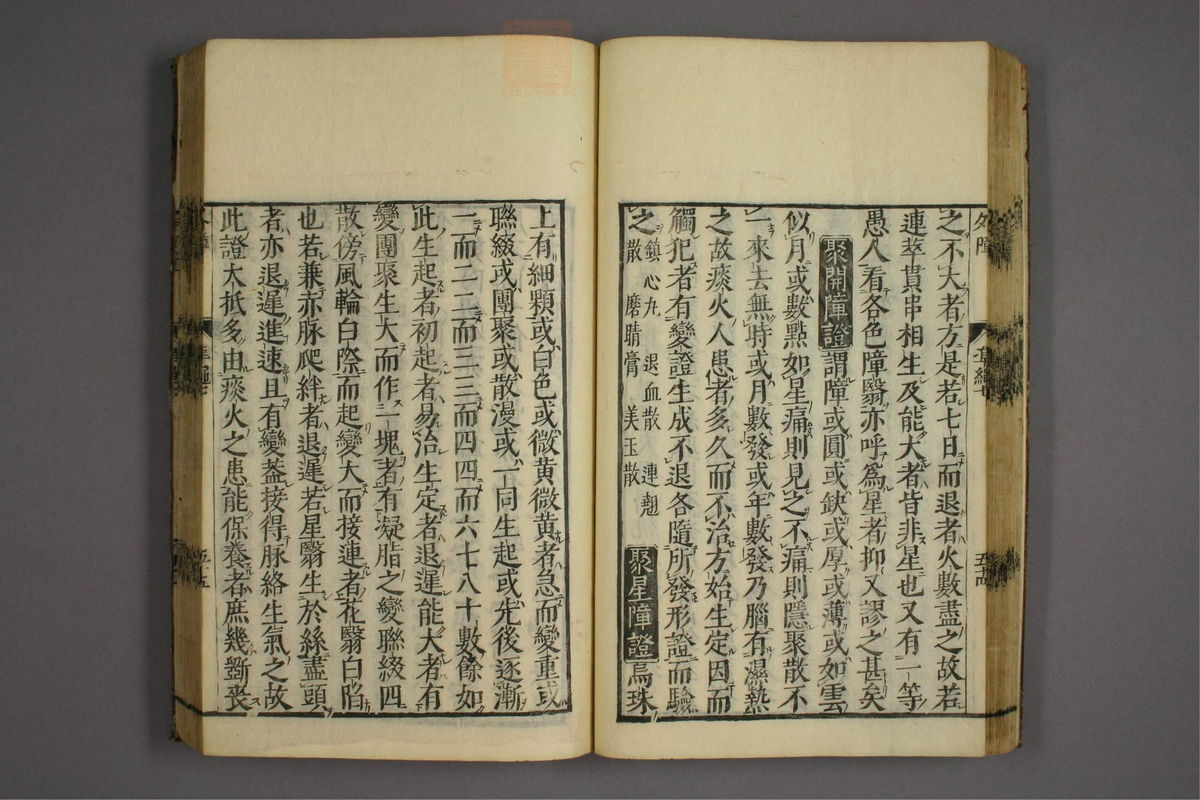 之不大者方是若七日而退者火數盡之故若
連萃貫串相生及能大者皆非星也又有一等
愚人看各色障翳亦呼爲星者抑又謬之甚矣
聚開障證謂障或圓或缺或厚或薄或如雲
似月或數點如星痛則見之不痛則隱聚散不
一來去無時或月數發或年數發乃腦有濕熱
之故痰火人患者多久而不治方始生定因而
觸犯者有變證生成不退各隨所發形證而驗
之鎮心丸 退血散 連翹
散 磨睛膏 美玉散
聚星障證烏珠
上有細顆或白色或微黃微黃者急而變重或
聯綴或團聚或散漫或一同生起或先後逐漸
一而二二而三三而四四而六七八十數餘如
此生起者初起者易治生定者退遲能大者有
變團聚生大而作一塊者有凝脂之變聯綴四
散傍風輪白際而起變大而接連者花翳白陷
也若兼赤脉爬絆者退遲若星翳生於絲盡頭
者亦退遲進速且有變葢接得脉絡生氣之故
此證大抵多由痰火之患能保養者庶幾斵喪